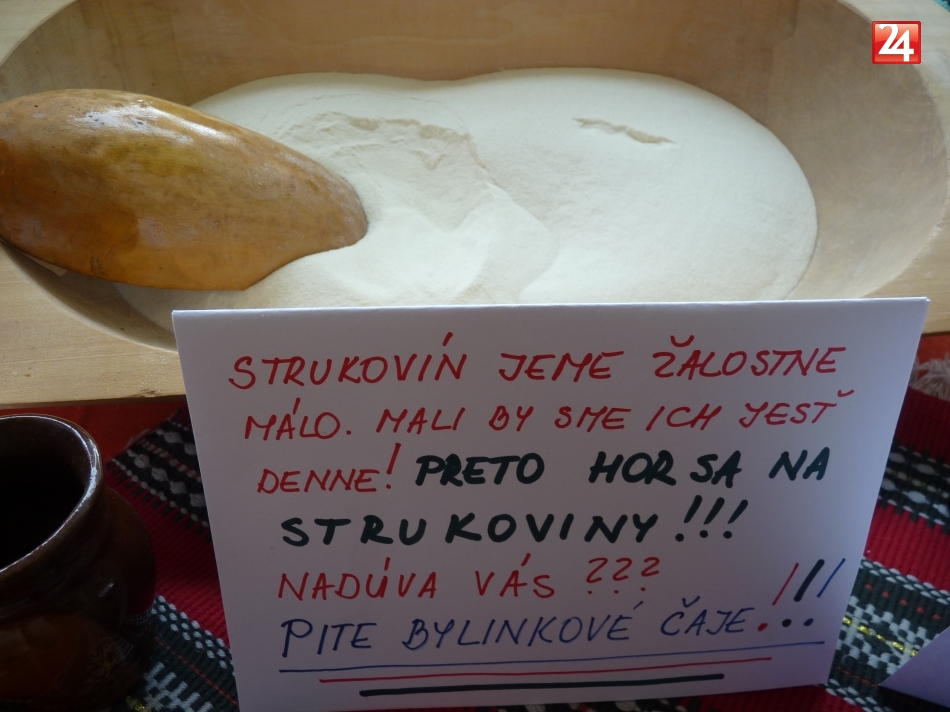 24
STRUKOVÍN JEME ŽALOSTNE
MÁLO. MALI BY SME ICH JESŤ
DENNE! PRETO HOR SA NA
STRUKOVINY!!!
NADÚVA VÁS ???
PITE BYLINKOVÉ ČAJE!!!